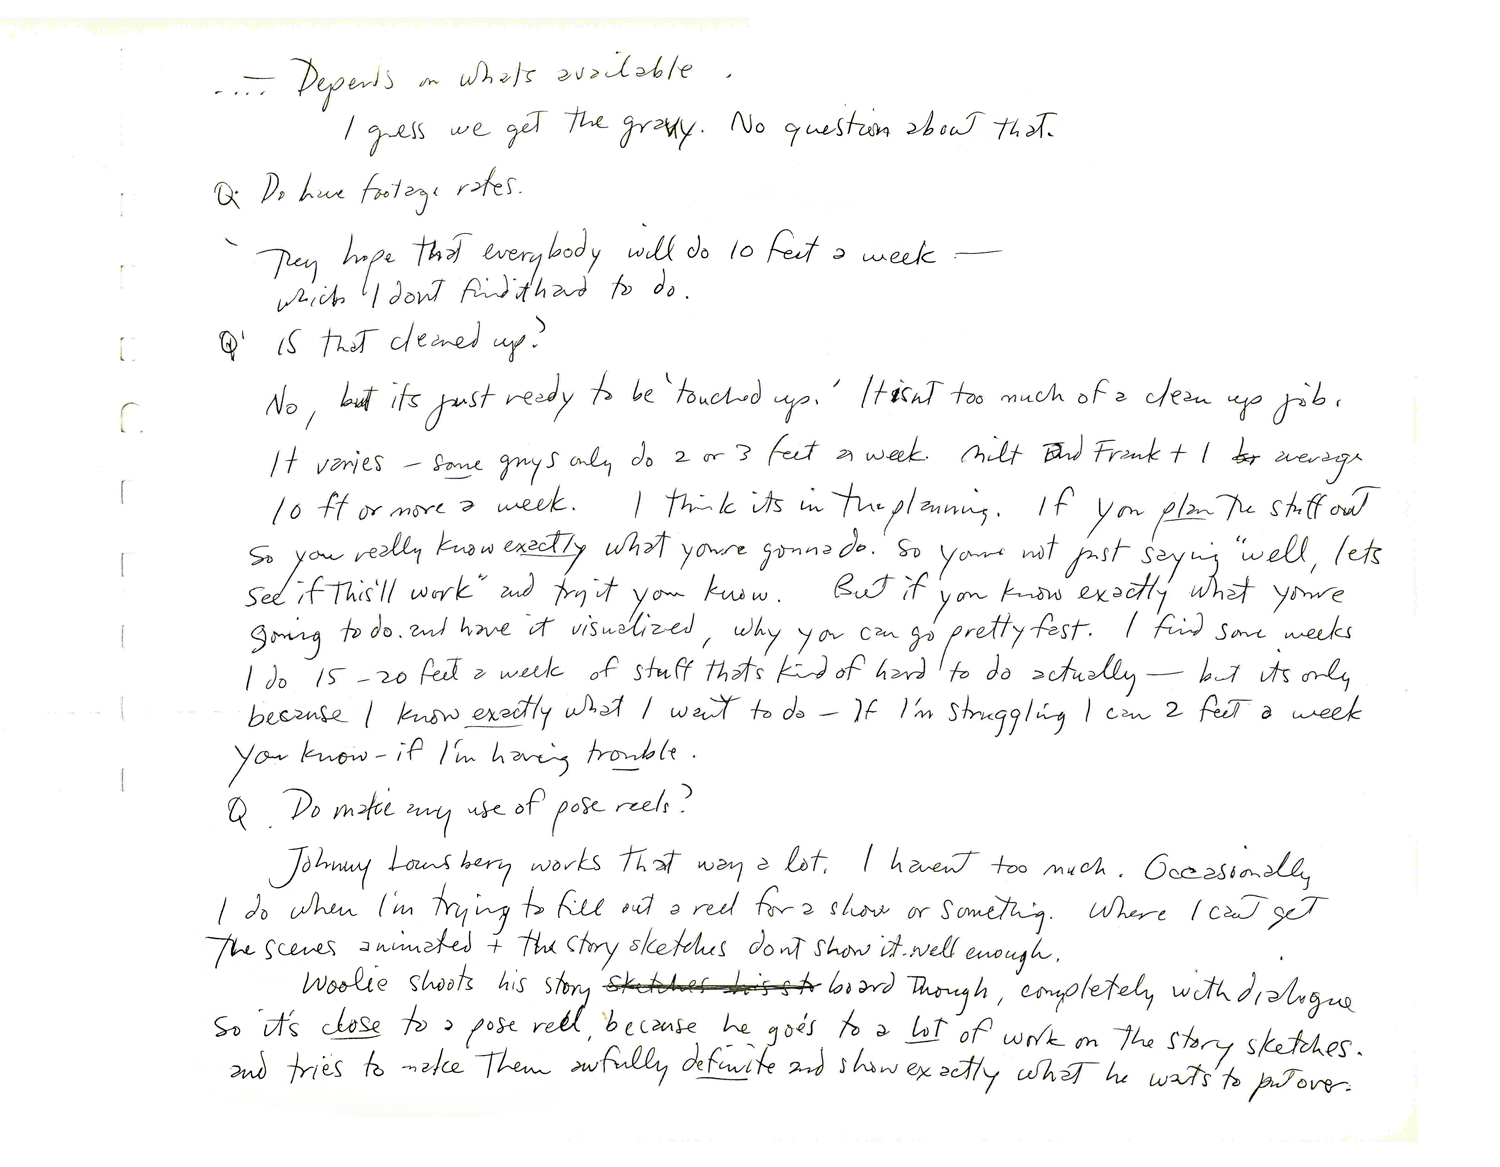 .... Depends on whats available.
I guess we get the gravy. No question about that.
Q: Do have footage rates.
They hope that everybody will do 10 feet a week —
which I dont find it hard to do.
Q' Is that cleaned up?
No, but its just ready to be 'touched up.' It isnt too much of a clean up job.
It varies - some guys only do 2 or 3 feet a week. Milt and Frank + I average
10 ft or more a week. I think its in the planning. If you plan the stuff out
So you really know exactly what youre gonna do. So youre not just saying "well, lets
see if This'll work" and try it you know. But if you know exactly what youre
going to do. and have it visualized, why you can go pretty fast. I find some weeks
I do 15-20 feet a week of stuff thats kind of hard to do actually — but its only
because I know exactly what I want to do - If I'm struggling I can 2 feet a week
you know - if I'm having trouble.
Q. Do make any use of pose reels?
Johnny Lounsbery works that way a lot. I havent too much. Occasionally
I do when I'm trying to fill out a reel for a show or something. Where I cant get
The scenes animated + the story sketches dont show it well enough.
Woolie shoots his story sketches his sto board Though, completely with dialogue
So it's close to a pose reel, because he goes to a lot of work on the story sketches.
and tries to make Them awfully definite and show exactly what he wats to put over.